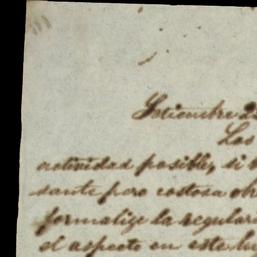 Setiembre 2
Los
actividad posible, si
sante pero costosa ob
formalize la regular
el aspecto en este lu